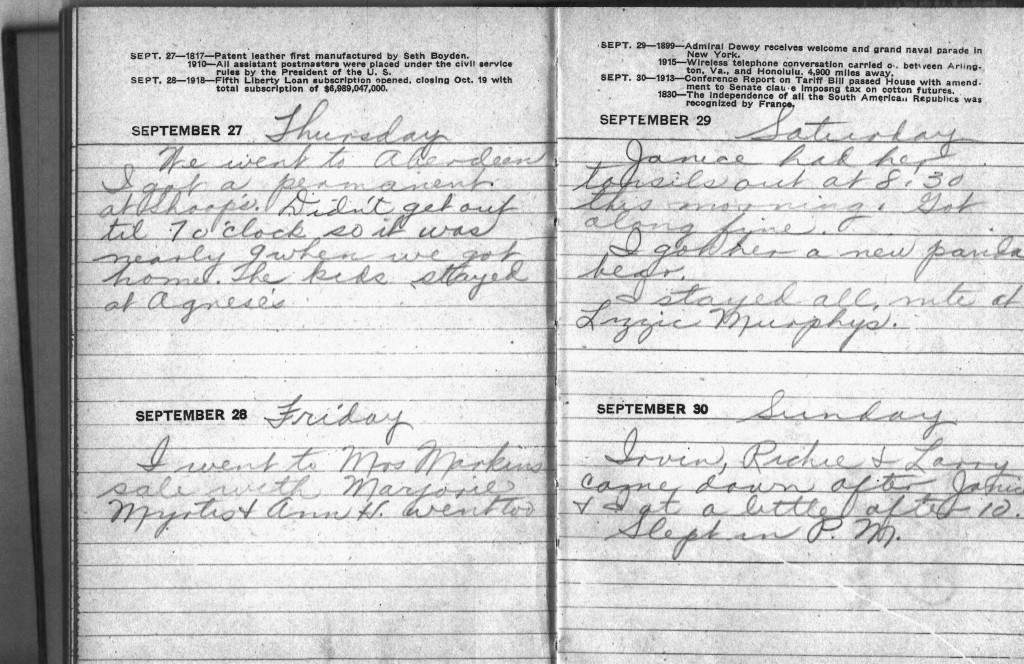 SEPT. 27—1817—Patent leather first manufactured by Seth Boyden.
1910—All assistant postmasters were placed under the civil service
rules by the President of the U. S.
SEPT. 28—1918—Fifth Liberty Loan subscription opened, closing Oct. 19 with
total subscription of $6,989,047,000.
SEPTEMBER 27 Thursday
We went to Aberdeen
I got a permanent
at Shoop's. Didn't get out
til 7 o'clock so it was
nearly 9 when we got
home. The kids stayed
at Agnese's
SEPTEMBER 28 Friday
I went to Mrs Markins
sale with Marjorie
Myrtis & Ann H. went too
SEPT. 29—1899—Admiral Dewey receives welcome and grand naval parade in
New York.
1915—Wireless telephone conversation carried o. between Arling-
ton, Va., and Honolulu, 4,900 miles away.
SEPT. 30—1913—Conference Report on Tariff Bill passed House with amend-
ment to Senate clause imposing tax on cotton futures.
1830—The Independence of all the South American Republics was
recognized by France.
SEPTEMBER 29 Saturday
Janice had her
tonsils out at 8:30
this morning. Got
along fine.
I got her a new panda
bear.
I stayed all nite at
Lizzie Murphy's.
SEPTEMBER 30 Sunday
Irvin, Richie & Larry
came down after Janice
& I at a little after 10.
Slept in P. M.